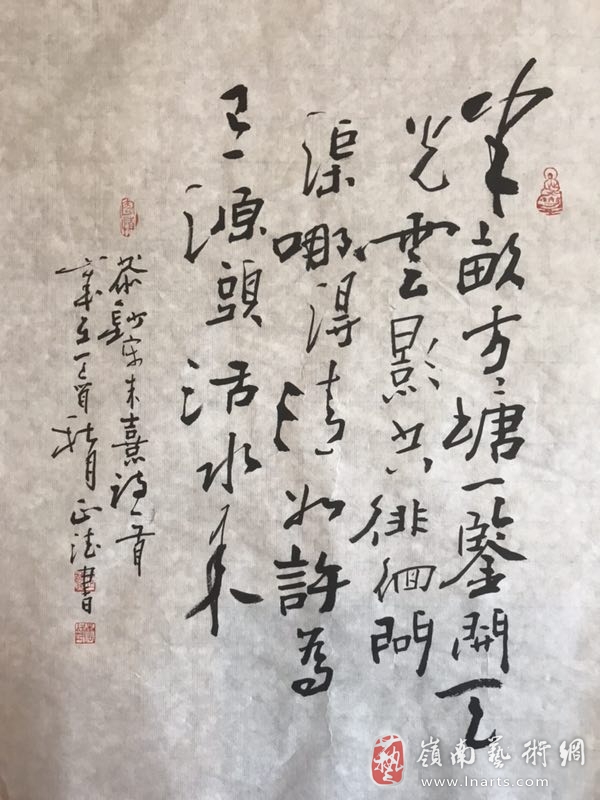 半畝方塘一鑒開天
光雲影共徘徊問
渠哪得清如許為
有源頭活水来
恭鈔宋朱熹詩一首
秋月正書
藝
嶺南藝術網
www.lnarts.com